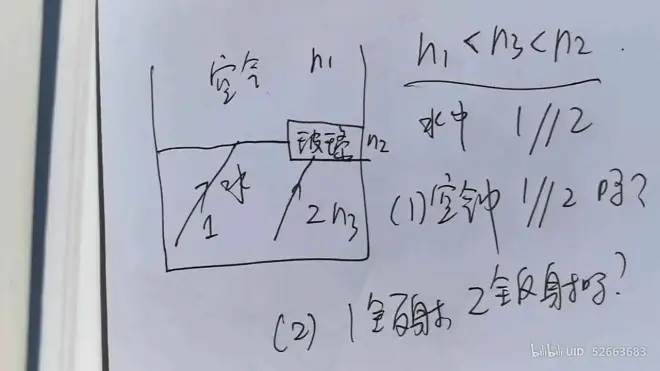 空气 n₁
n₁<n₃<n₂.
玻璃 n₂
水中 1//2
水
1
2 n₃
(1)空气中 1//2 吗?
(2) 1全反射 2全反射吗?
bilibili UID 52663683